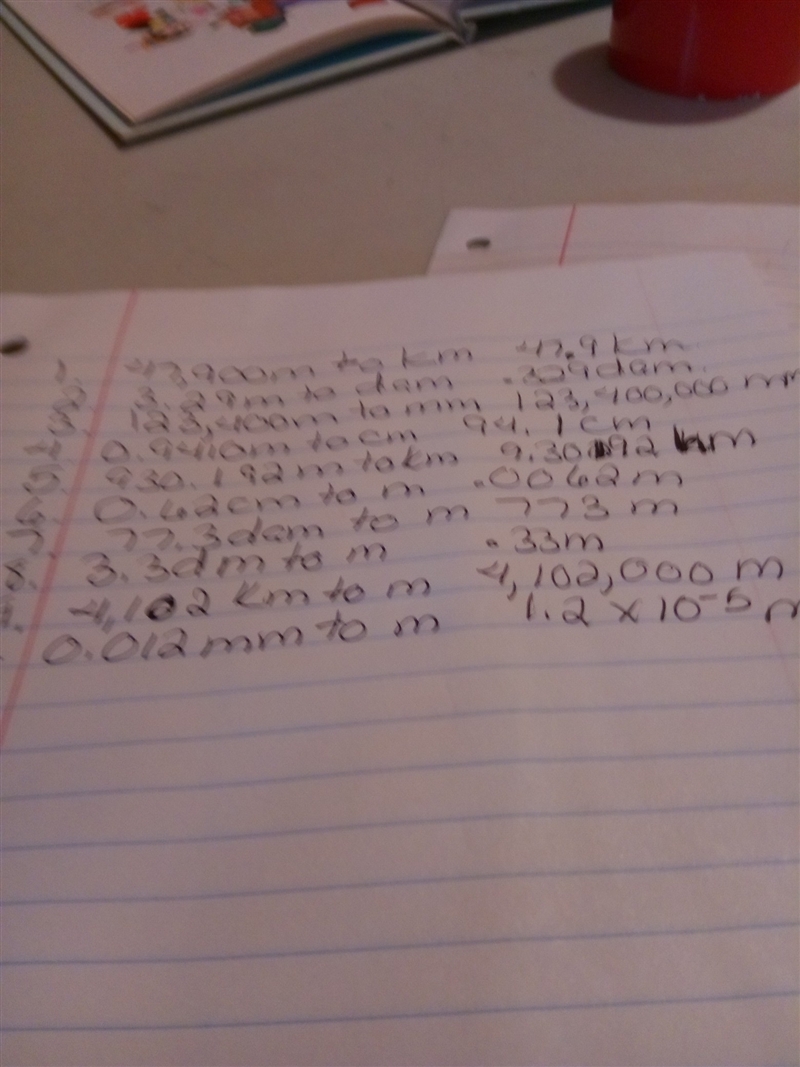 47,900m to km 47.9 km
3.29m to dam .329 dam
3. 123,400m to mm 123,400,000 mm
0.9410m to cm 94.1 cm
5. 930.192 m to km 9.30192 km
6. 0.62cm to m .0062 m
7. 77.3 dam to m 773 m
8. 3.3dm to m .33m
4,102 km to m 4,102,000 m
0.012mm to m 1.2 x 10-5 m